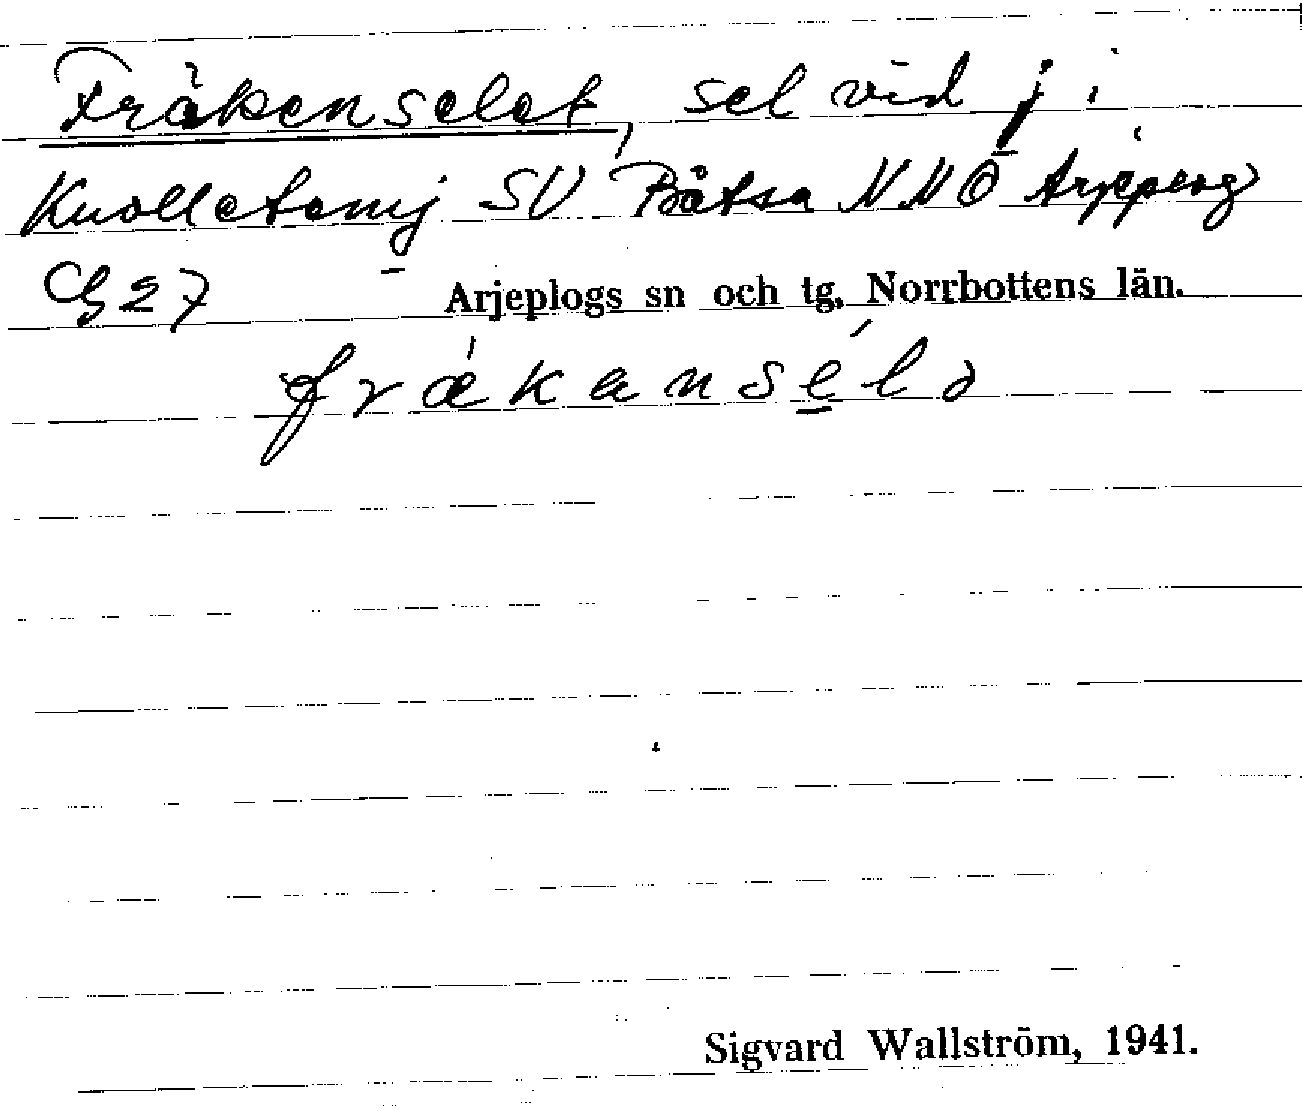 Fräkenselet, sel vid j. i
SV Båtsa NNÖ Arjeplog
G 27 Arjeplogs sn och tg, Norrbottens län.
frækansélə
Sigvard Wallström, 1941.